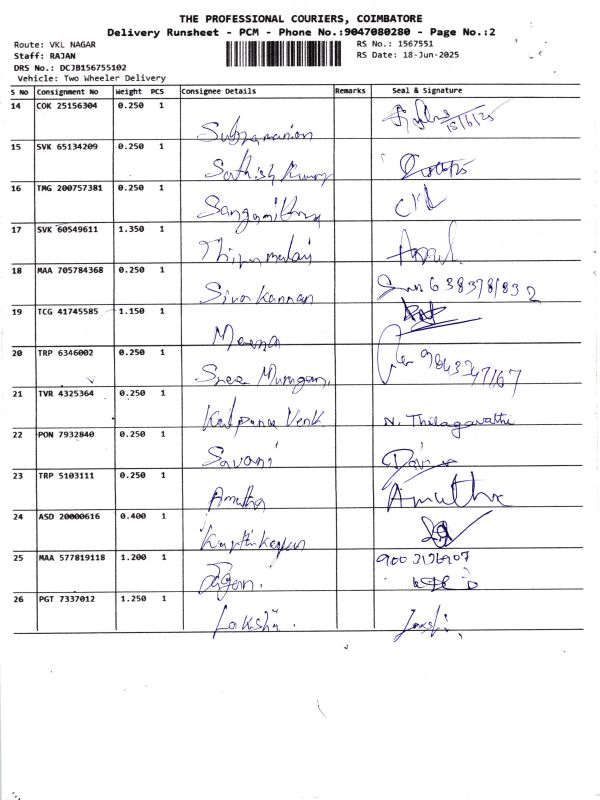 THE PROFESSIONAL COURIERS, COIMBATORE
Delivery Runsheet - PCM - Phone No.:9047080280 - Page No.:2
Route: VKL NAGAR
Staff: RAJAN
DRS No.: DCJB156755102
Vehicle: Two Wheeler Delivery
RS No.: 1567551
RS Date: 18-Jun-2025
S No Consignment No Weight PCS Consignee Details Remarks Seal & Signature
14 COK 25156304 0.250 1 Subramanian
15 SVK 65134209 0.250 1 Sathish Kumar
16 TMG 200757381 0.250 1 Sangamithra
17 SVK 60549611 1.350 1 Thirumalai
18 MAA 705784368 0.250 1 Siva Kannan 6383781832
19 TCG 41745585 1.150 1 Meena
20 TRP 6346002 0.250 1 Sree Murugan. 9843347167
21 TVR 4325364 0.250 1 Kalpana Venk N. Thilagavathi
22 PON 7932840 0.250 1 Savani
23 TRP 5103111 0.250 1 Amutha Amutha
24 ASD 20000616 0.400 1 Karthikeyan
25 MAA 577819118 1.200 1
26 PGT 7337012 1.250 1 Lakshi.